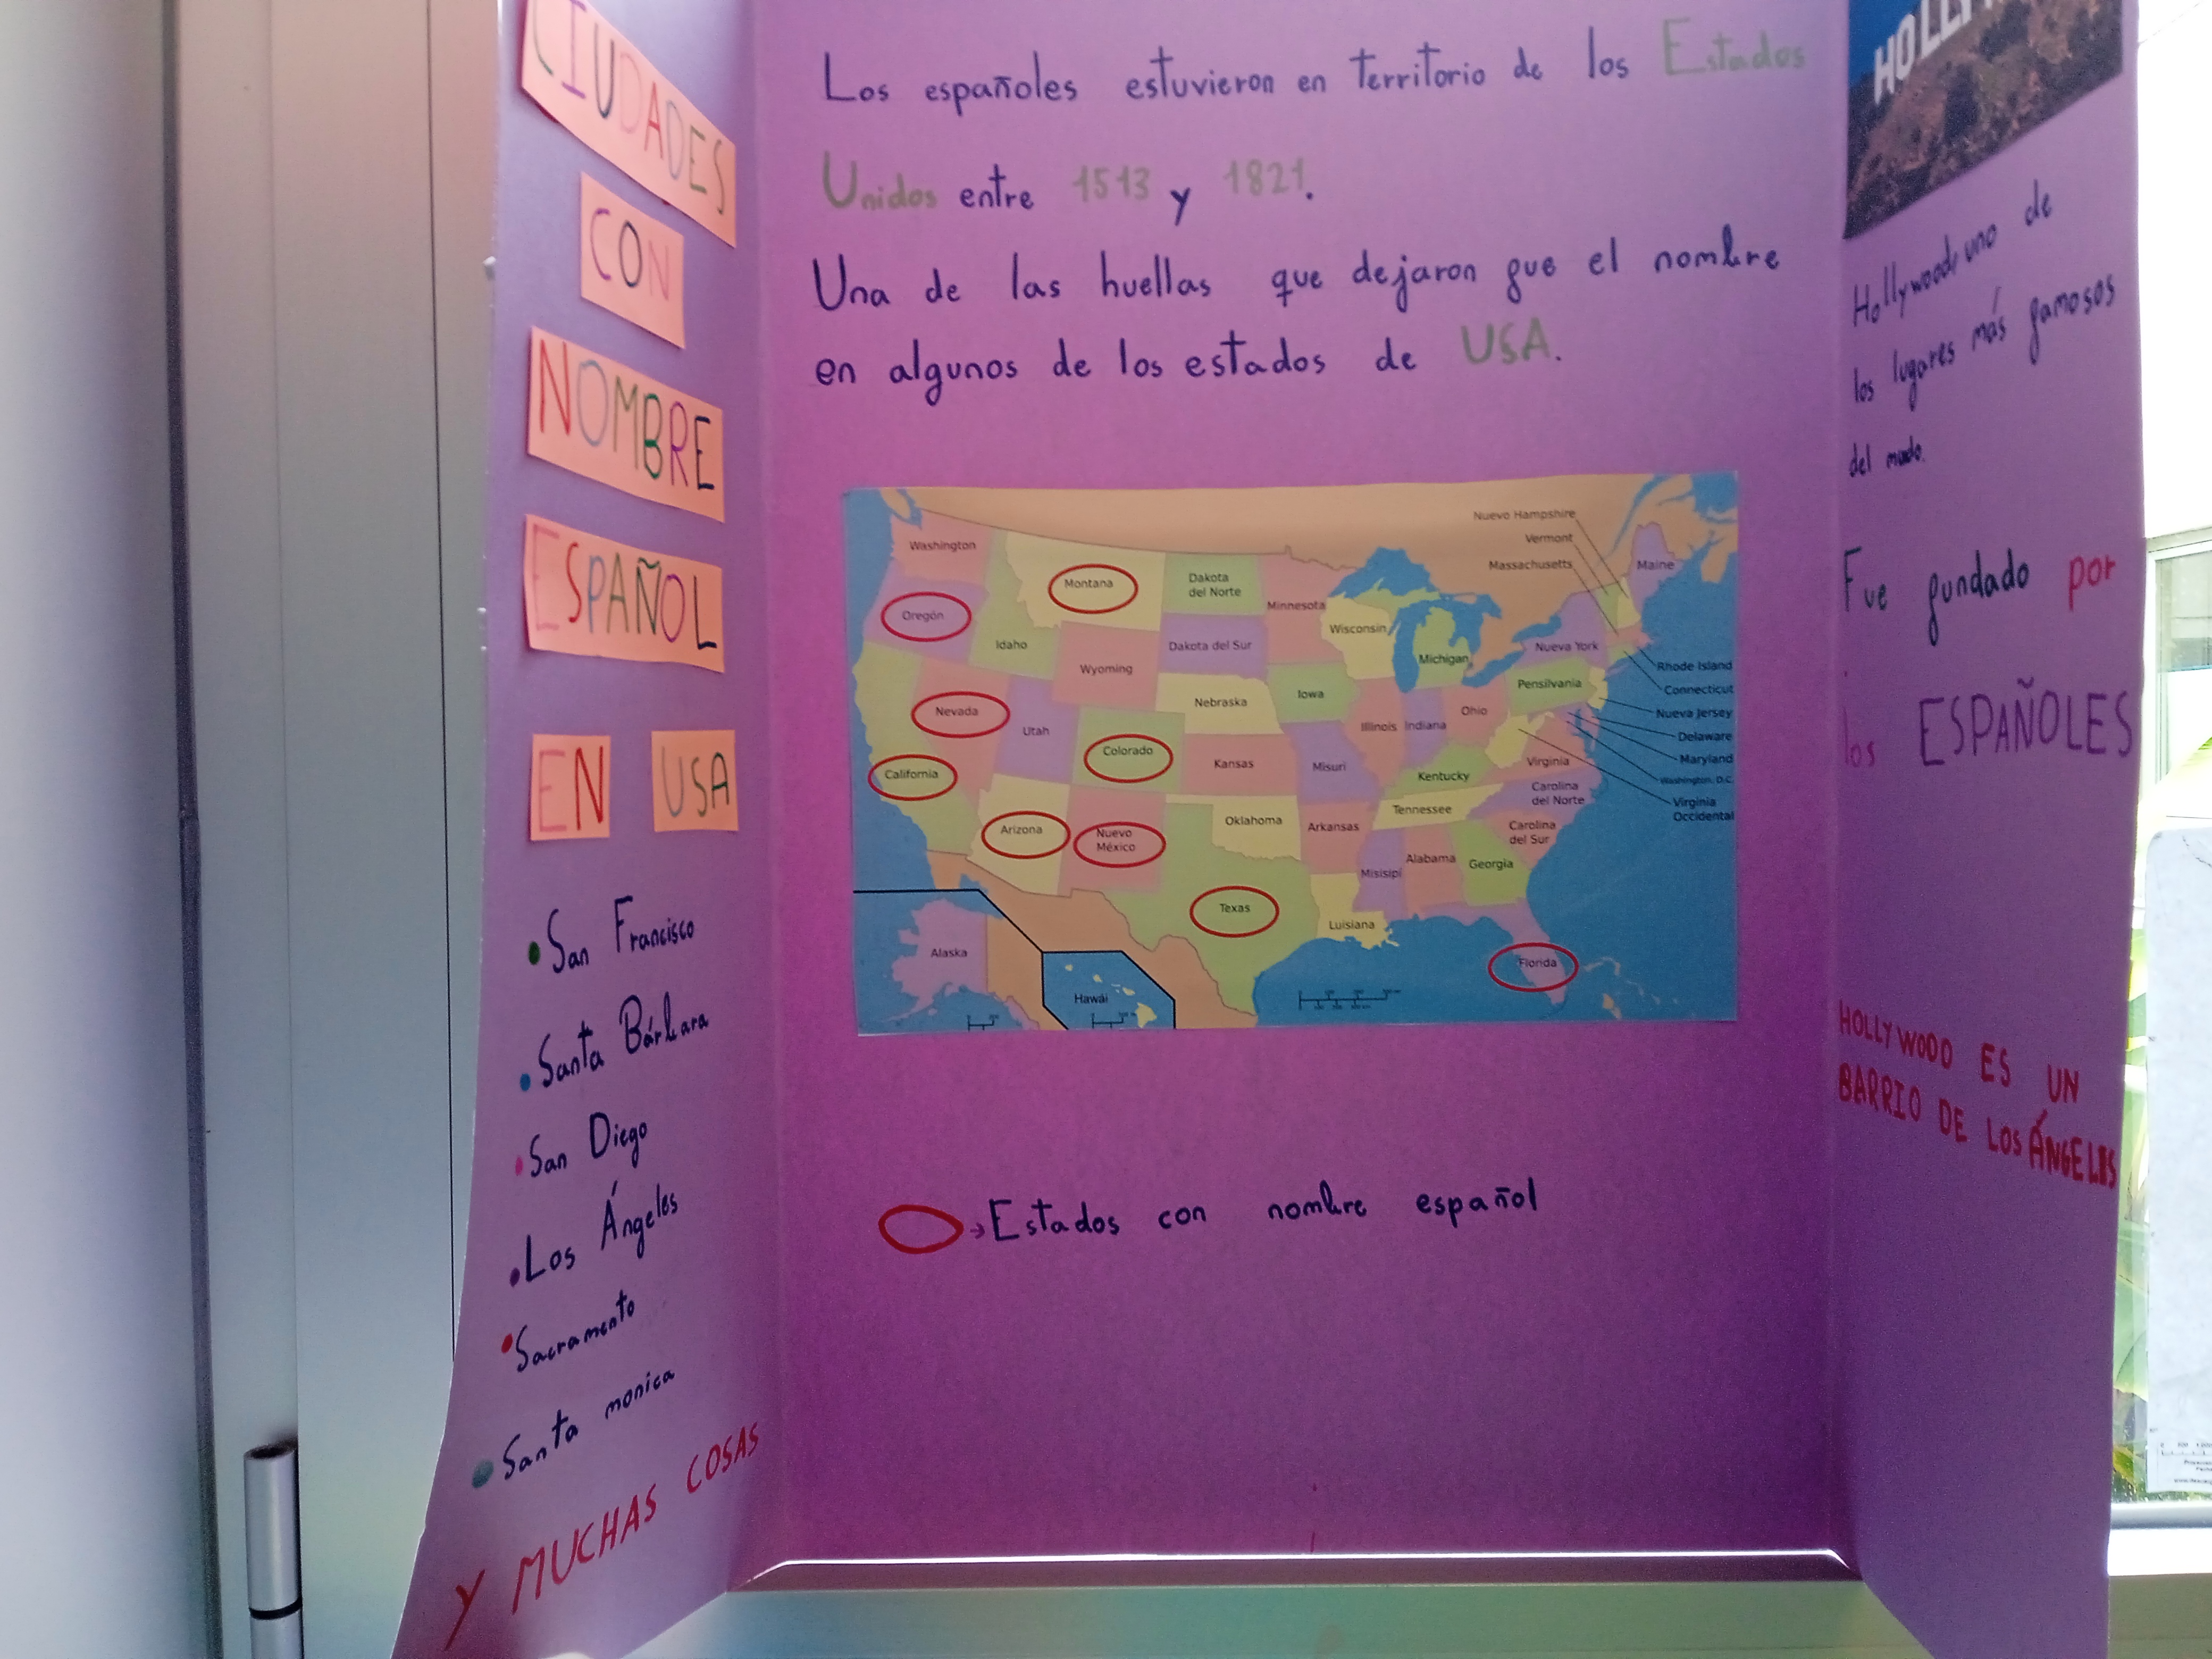 CIUDADES
CON
NOMBRE
ESPAÑOL
EN USA
San Francisco
Santa Bárbara
San Diego
Los Ángeles
Sacramento
Santa monica
Y MUCHAS COSAS
Los españoles estuvieron en territorio de los Estados
Unidos entre 1513 y 1821.
Una de las huellas que dejaron fue el nombre
en algunos de los estados de USA.
Nuevo Hampshire
Vermont
Massachusetts
Maine
Washington
Montana
Dakota
del Norte
Minnesota
Oregón
Idaho
Wisconsin
Dakota del Sur
Michigan
Nueva York
Wyoming
Rhode Island
Connecticut
Nebraska
Iowa
Pensilvania
Nueva Jersey
Nevada
Utah
Illinois
Indiana
Ohio
Delaware
Maryland
Washington, D.C.
California
Colorado
Kansas
Misuri
Kentucky
Virginia
Virginia
Occidental
Carolina
del Norte
Arizona
Nuevo
México
Oklahoma
Arkansas
Tennessee
Carolina
del Sur
Misisipi
Alabama
Georgia
Texas
Luisiana
Florida
Alaska
Hawái
→ Estados con nombre español
HOLLY
Hollywood, uno de
los lugares más famosos
del mudo.
Fue fundado por
los ESPAÑOLES
HOLLYWOOD ES UN
BARRIO DE LOS ÁNGELES